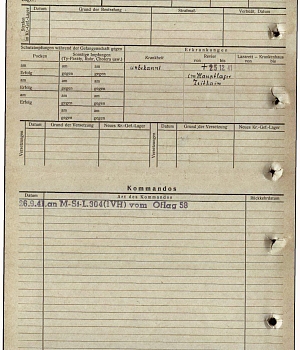 Datum
Grund der Bestrafung
Strafmaß
Verbüßt, Datum
Schutzimpfungen während der Gefangenschaft gegen
Erkrankungen
Pocken
Sonstige Impfungen
(Ty-Paraty, Ruhr, Cholera usw.)
Krankheit
Revier
von bis
Lazarett - Krankenhaus
von bis
am
am
am
unbekannt
+ 25.12.41
Erfolg
gegen
gegen
im Hauptlager
am
am
am
Zeithain
Erfolg
gegen
gegen
am
am
am
Erfolg
gegen
gegen
Datum
Grund der Versetzung
Neues Kr.-Gef.-Lager
Datum
Grund der Versetzung
Neues Kr.-Gef.-Lager
Versetzungen
Kommandos
Datum
Art des Kommandos
Rückkehrdatum
26.9.41.an M-St-L.304(IVH) vom Oflag 58